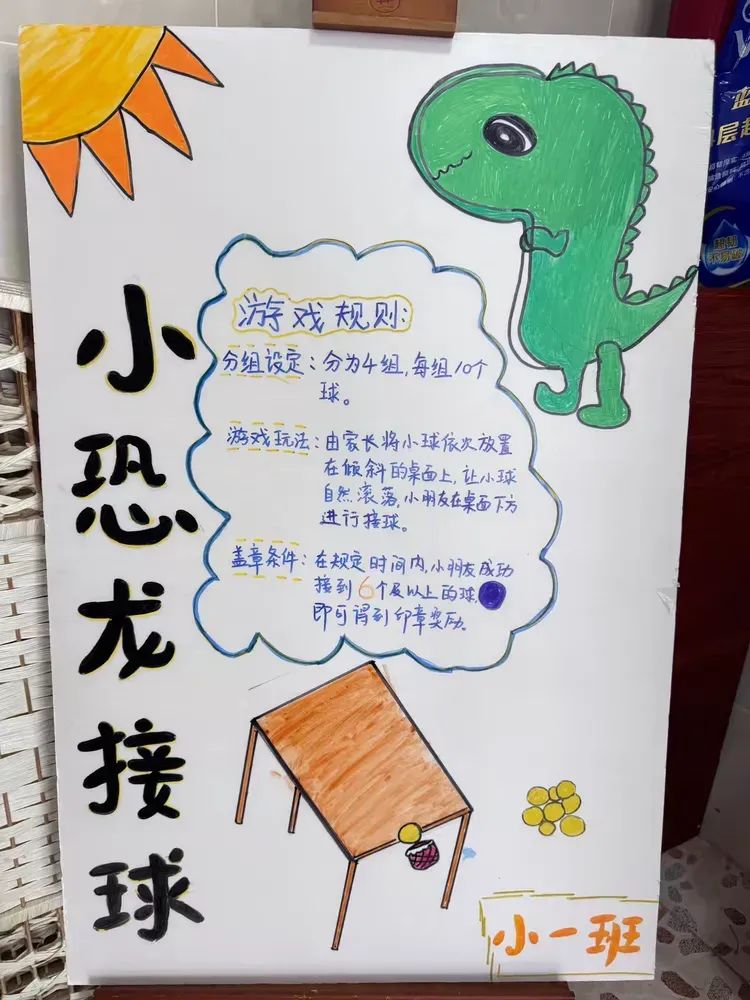 小恐龙接球
游戏规则:
分组设定:分为4组,每组10个
球。
游戏玩法:由家长将小球依次放置
在倾斜的桌面上,让小球
自然滚落,小朋友在桌面下方
进行接球。
盖章条件:在规定时间内,小朋友成功
接到6个及以上的球,
即可得到印章奖励。
小一班